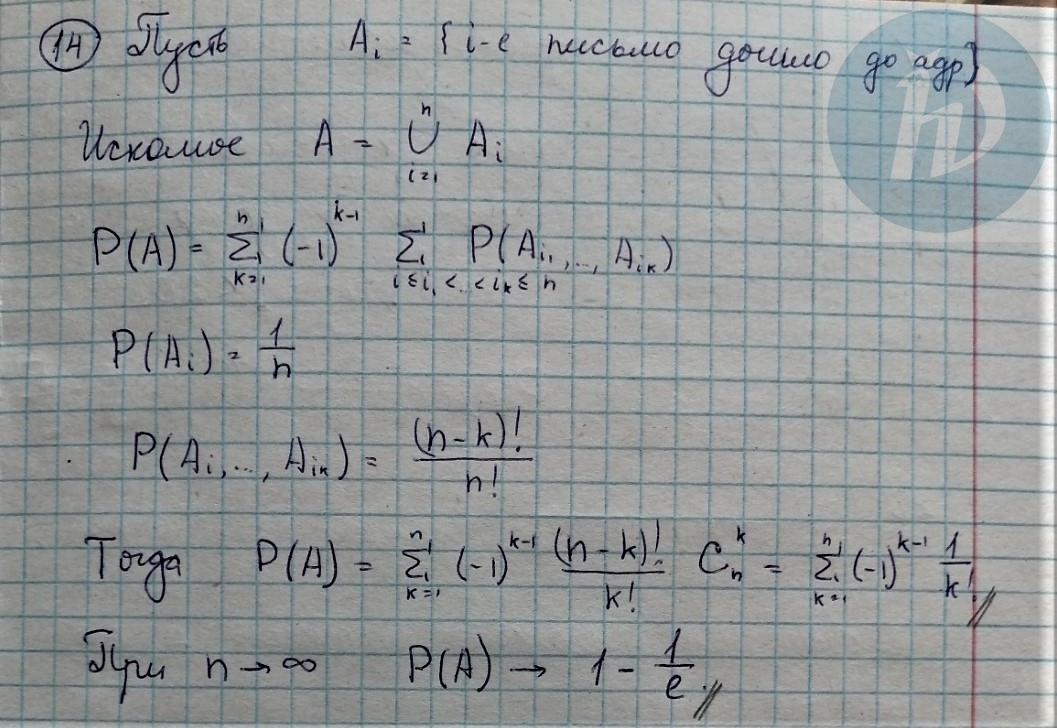 14 Пусть A_i = {i-е письмо дошло до адр}
Искомое A = ⋃_{i=1}^{n} A_i
P(A) = ∑_{k=1}^{n} (-1)^{k-1} ∑_{1≤i_1<...<i_k≤n} P(A_{i_1},...,A_{i_k})
P(A_i) = 1/n
P(A_i,...,A_{i_k}) = (n-k)!/n!
Тогда P(A) = ∑_{k=1}^{n} (-1)^{k-1} (n-k)!/k! C_n^k = ∑_{k=1}^{n} (-1)^{k-1} 1/k! //
При n → ∞ P(A) → 1 - 1/e. //